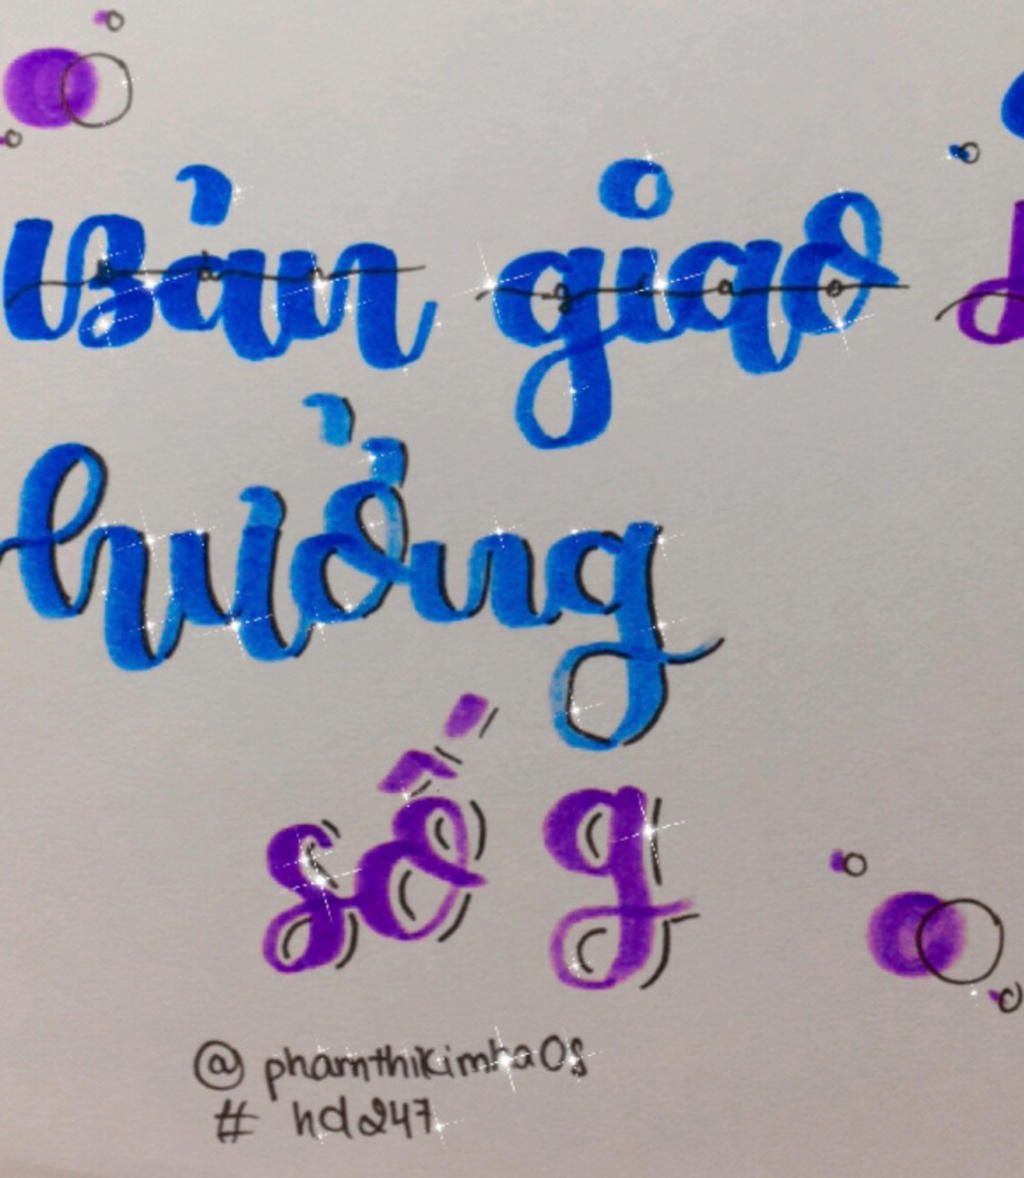 Bản giao
hưởng
số 9
@phamthikimha08
# hd247